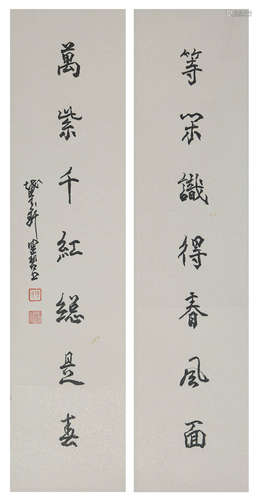 等閑識得春風面
萬紫千紅總是春